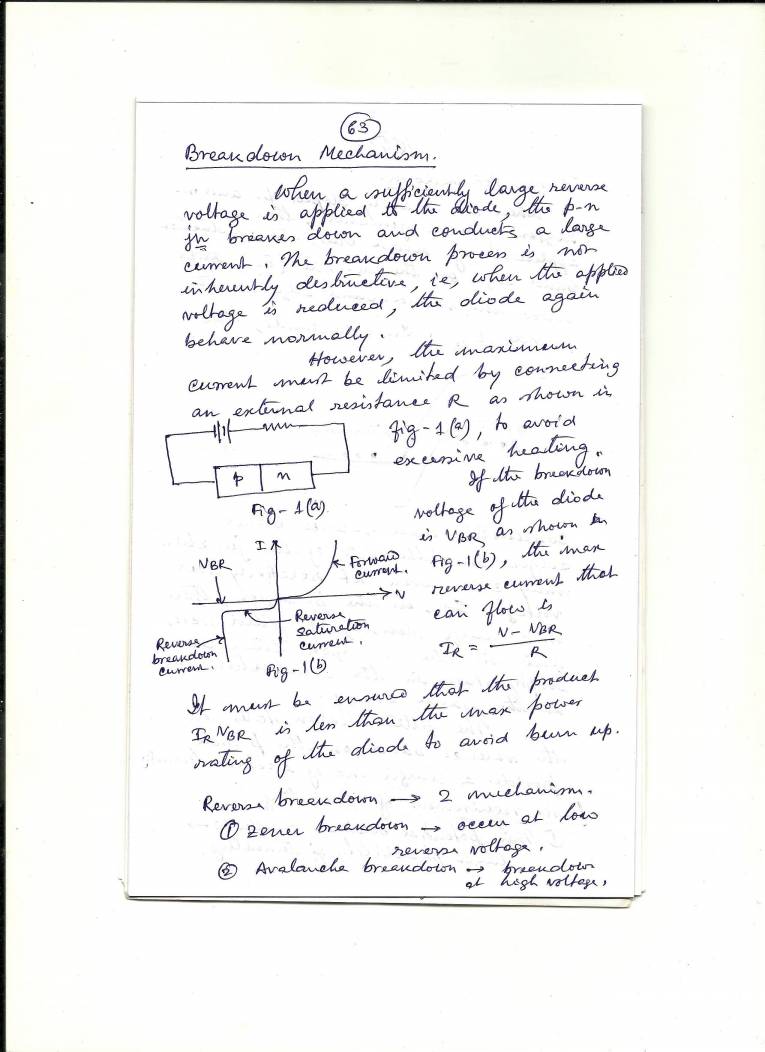 63
Breakdown Mechanism.
When a sufficiently large reverse
voltage is applied to the diode, the p-n
jn breakes down and conducts a large
current. The breakdown process is not
inherently destructive, ie, when the applied
voltage is reduced, the diode again
behave normally.
However, the maximum
current must be limited by connecting
an external resistance R as shown in
fig-1(a), to avoid
excessive heating.
p n
Fig-1(a)
If the breakdown
voltage of the diode
is VBR, as shown in
Fig-1(b), the max
reverse current that
can flow is
IR = V - VBR / R
I
VBR
Forward
current.
V
Reverse
saturation
current.
Reverse
breakdown
current.
Fig-1(b)
It must be ensured that the product
IR VBR is less than the max power
rating of the diode to avoid burn up.
Reverse breakdown → 2 mechanism.
① Zener breakdown → occur at low
reverse voltage.
② Avalanche breakdown → breakdown
at high voltage.